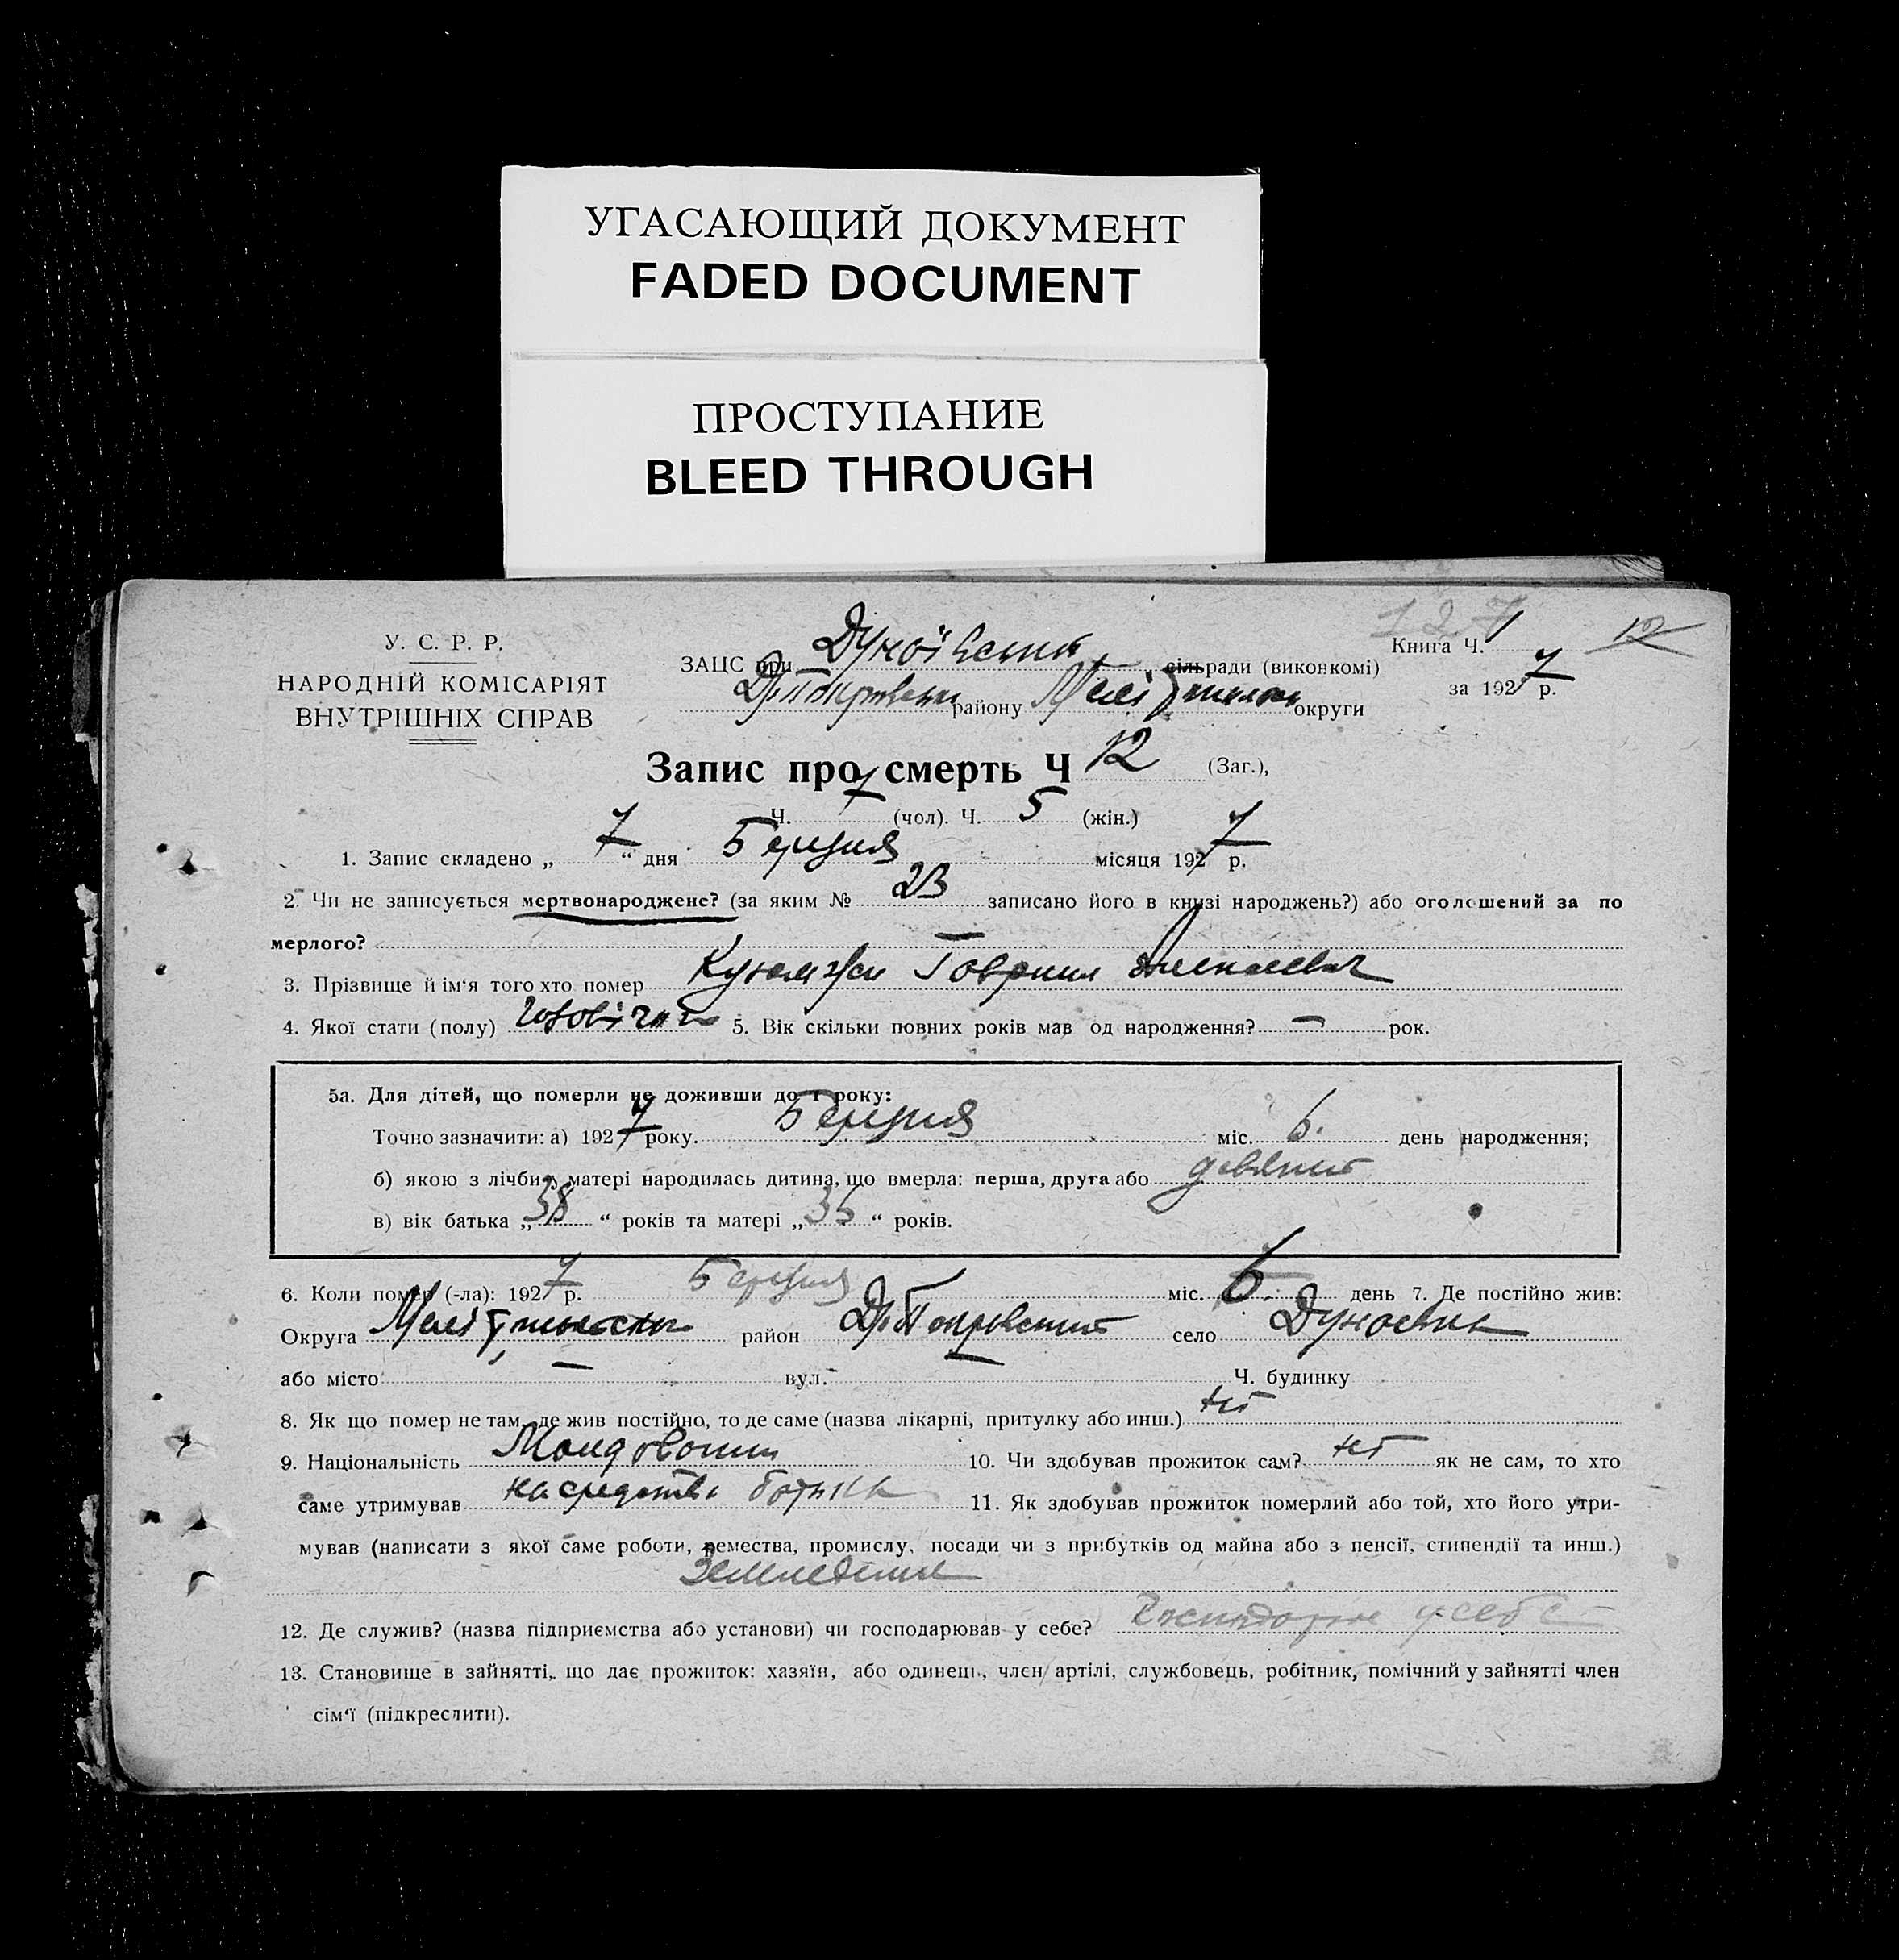 УГАСАЮЩИЙ ДОКУМЕНТ
FADED DOCUMENT
ПРОСТУПАНИЕ
BLEED THROUGH
127
12
У. С. Р. Р.
НАРОДНІЙ КОМІСАРІЯТ
ВНУТРІШНІХ СПРАВ
Книга Ч. 1
за 1927 р.
ЗАЦС при сільради (виконкомі)
району округи
Запис про смерть Ч 12 (Заг.),
Ч. 7 (чол). Ч. 5 (жін.)
1. Запис складено „ 7 “ дня Березня місяця 1927 р.
2. Чи не записується мертвонароджене? (за яким № 23 записано його в книзі народжень?) або оголошений за по
мерлого? —
3. Прізвище й ім'я того хто помер Гавриил
4. Якої стати (полу) 5. Вік скільки повних років мав од народження? — рок.
5а. Для дітей, що померли не доживши до 1 року:
Точно зазначити: а) 1927 року. Березня міс. 6. день народження;
б) якою з лічби у матері народилась дитина, що вмерла: перша, друга або девятий
в) вік батька „ 38 “ років та матері „ 35 “ років.
6. Коли помер (-ла): 1927 р. Березня міс. 6. день 7. Де постійно жив:
Округа район село
або місто — вул. — Ч. будинку
8. Як що помер не там, де жив постійно, то де саме (назва лікарні, притулку або инш.) ні
9. Національність 10. Чи здобував прожиток сам? ні як не сам, то хто
саме утримував на средства батька 11. Як здобував прожиток померлий або той, хто його утри-
мував (написати з якої саме роботи, ремества, промислу, посади чи з прибутків од майна або з пенсії, стипендії та инш.)
Земледелие
12. Де служив? (назва підприємства або установи) чи господарював у себе? у себе
13. Становище в зайнятті, що дає прожиток: хазяїн, або одинець, член артілі, службовець, робітник, помічний у зайнятті член
сім'ї (підкреслити).